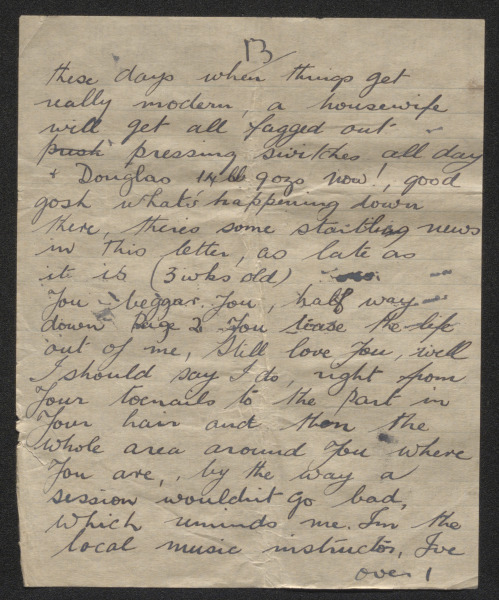 13
these days when things get
really modern, a housewife
will get all fagged out
push pressing switches all day
+ Douglas gozo now!, good
gosh what's happening down
there, theres some startling news
in this letter, as late as
it is (3 wks old)
You beggar You, half way
down page 2 You tease the life
out of me, Still love You, well
I should say I do, right from
Your toenails to the Part in
Your hair and then the
whole area around You where
You are, , by the way a
session wouldn't go bad,
which reminds me. I'm the
local music instructor, I've
over 1